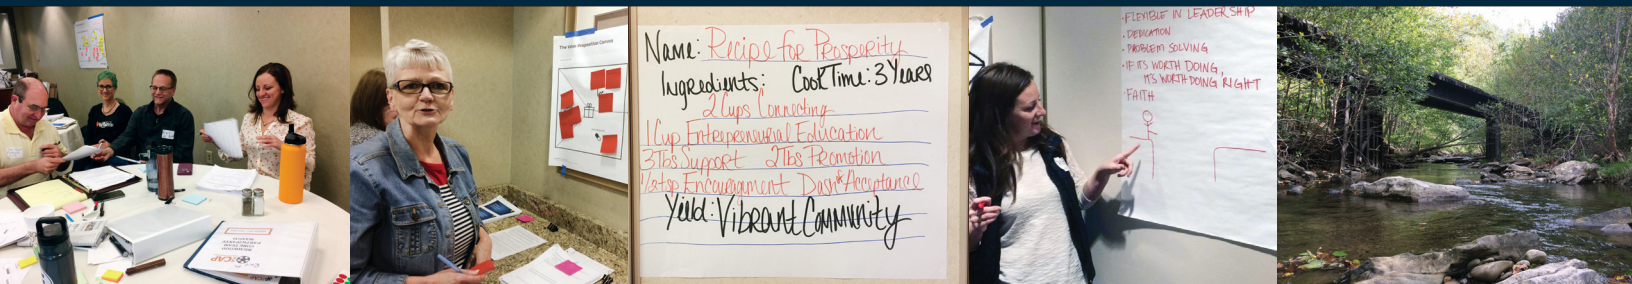 The Value Proposition Canvas
Name: Recipe for Prosperity
Ingredients: Cook Time: 3 Years
2 Cups Connecting
1 Cup Entrepreneurial Education
3 Tbs Support 2 Tbs Promotion
1/2 tsp Encouragment Dash*Acceptance
Yield: Vibrant Community
• FLEXIBLE IN LEADERSHIP
• DEDICATION
• PROBLEM SOLVING
• IF ITS WORTH DOING,
ITS WORTH DOING RIGHT
• FAITH